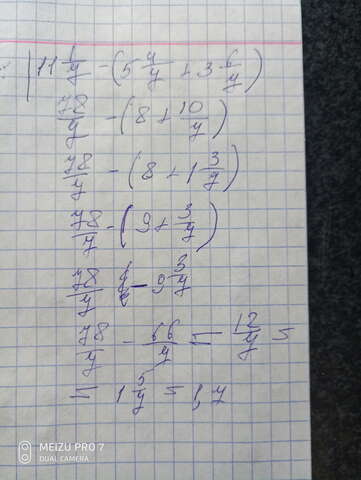 11 1/7 - (5 4/7 + 3 6/7)
78/7 - (8 + 10/7)
78/7 - (8 + 1 3/7)
78/7 - (9 + 3/7)
78/7 - 9 3/7
78/7 - 66/7 = 12/7 =
= 1 5/7 = 1,7
MEIZU PRO 7
DUAL CAMERA